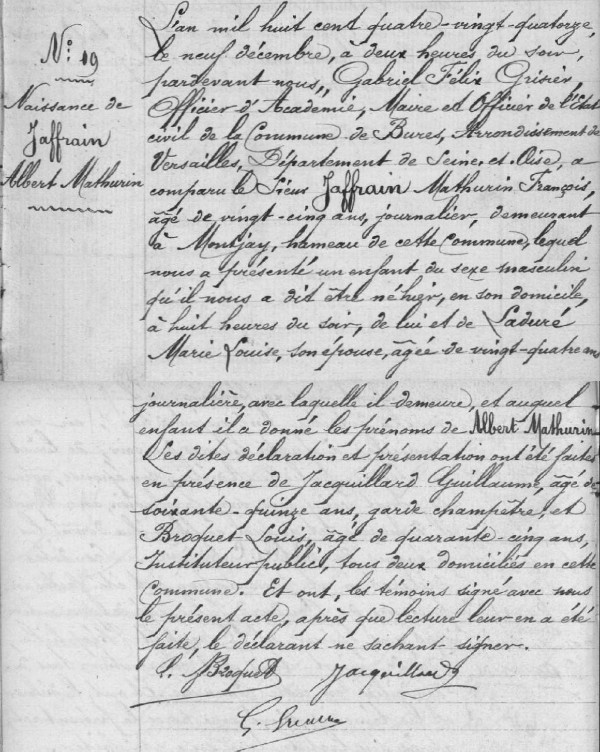 N° 19
Naissance de
Jaffrain
Albert Mathurin
L'an mil huit cent quatre-vingt-quatorze,
le neuf décembre, à deux heures du soir,
pardevant nous, Gabriel Félix Grisier,
Officier d'Académie, Maire et Officier de l'état
civil de la Commune de Bures, Arrondissement de
Versailles, Département de Seine-et-Oise, a
comparu le Sieur Jaffrain Mathurin François,
âgé de vingt-cinq ans, journalier, demeurant
à Montjay, hameau de cette Commune, lequel
nous a présenté un enfant du sexe masculin
qu'il nous a dit être né hier, en son domicile,
à huit heures du soir, de lui et de Laduré
Marie Louise, son épouse, âgée de vingt-quatre ans
journalière, avec laquelle il demeure, et auquel
enfant il a donné les prénoms de Albert Mathurin
Les dites déclaration et présentation ont été faites
en présence de Jacquillard Guillaume, âgé de
soixante-quinze ans, garde champêtre, et
Broquet Louis, âgé de quarante-cinq ans,
Instituteur public, tous deux domiciliés en cette
Commune. Et ont, les témoins signé avec nous
le présent acte, après que lecture leur en a été
faite, le déclarant ne sachant signer.
L. Broquet Jacquillard
G.